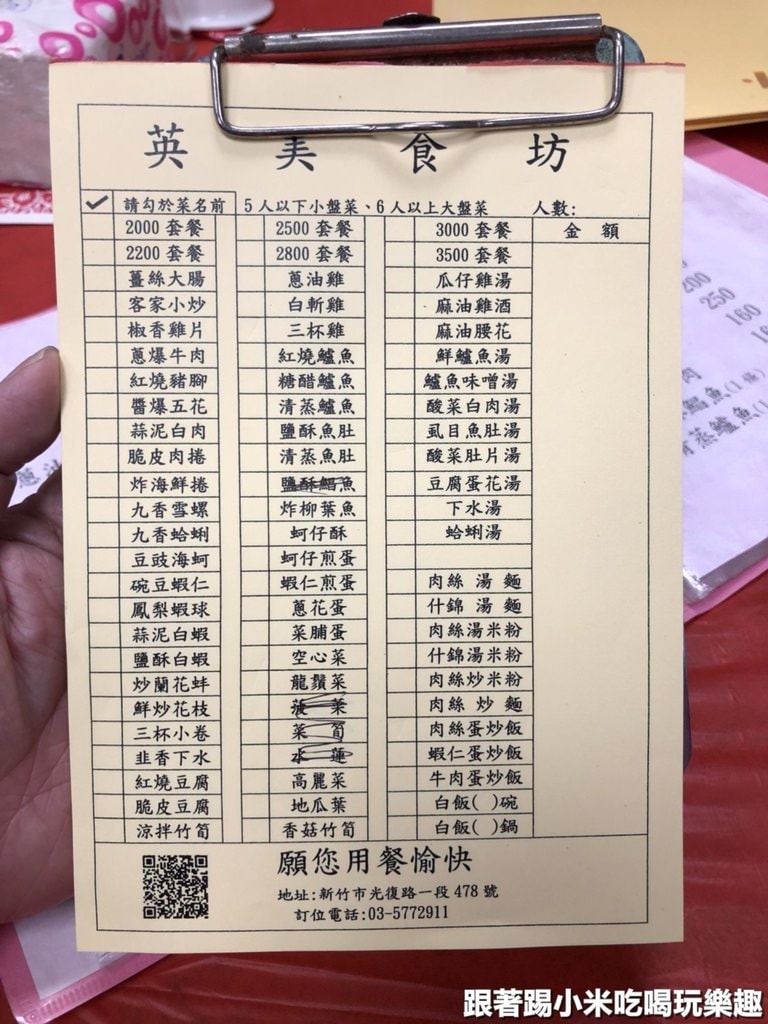 英美食坊
✓ 請勾於菜名前 5人以下小盤菜、6人以上大盤菜 人數:
2000 套餐 2500 套餐 3000 套餐 金額
2200 套餐 2800 套餐 3500 套餐
薑絲大腸 蔥油雞 瓜仔雞湯
客家小炒 白斬雞 麻油雞酒
椒香雞片 三杯雞 麻油腰花
蔥爆牛肉 紅燒鱸魚 鮮鱸魚湯
紅燒豬腳 糖醋鱸魚 鱸魚味噌湯
醬爆五花 清蒸鱸魚 酸菜白肉湯
蒜泥白肉 鹽酥魚肚 虱目魚肚湯
脆皮肉捲 清蒸魚肚 酸菜肚片湯
炸海鮮捲 鹽酥鯧魚 豆腐蛋花湯
九香雪螺 炸柳葉魚 下水湯
九香蛤蜊 蚵仔酥 蛤蜊湯
豆豉海蚵 蚵仔煎蛋
碗豆蝦仁 蝦仁煎蛋 肉絲湯麵
鳳梨蝦球 蔥花蛋 什錦湯麵
蒜泥白蝦 菜脯蛋 肉絲湯米粉
鹽酥白蝦 空心菜 什錦湯米粉
炒蘭花蚌 龍鬚菜 肉絲炒米粉
鮮炒花枝 菠菜 肉絲炒麵
三杯小卷 菜筍 肉絲蛋炒飯
韭香下水 水蓮 蝦仁蛋炒飯
紅燒豆腐 高麗菜 牛肉蛋炒飯
脆皮豆腐 地瓜葉 白飯( )碗
涼拌竹筍 香菇竹筍 白飯( )鍋
願您用餐愉快
地址:新竹市光復路一段 478 號
訂位電話:03-5772911
200
250
160
跟著踢小米吃喝玩樂趣